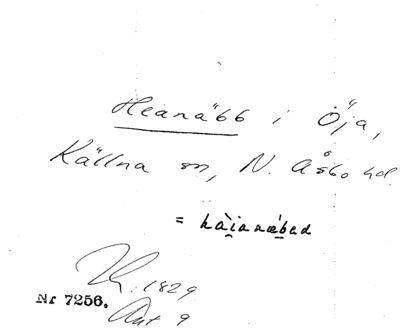 Heanäbb i Öja,
Källna sn, N. Åsbo hd.
= hàianæ̀bəd
1829
Nr 7256. Ant 9